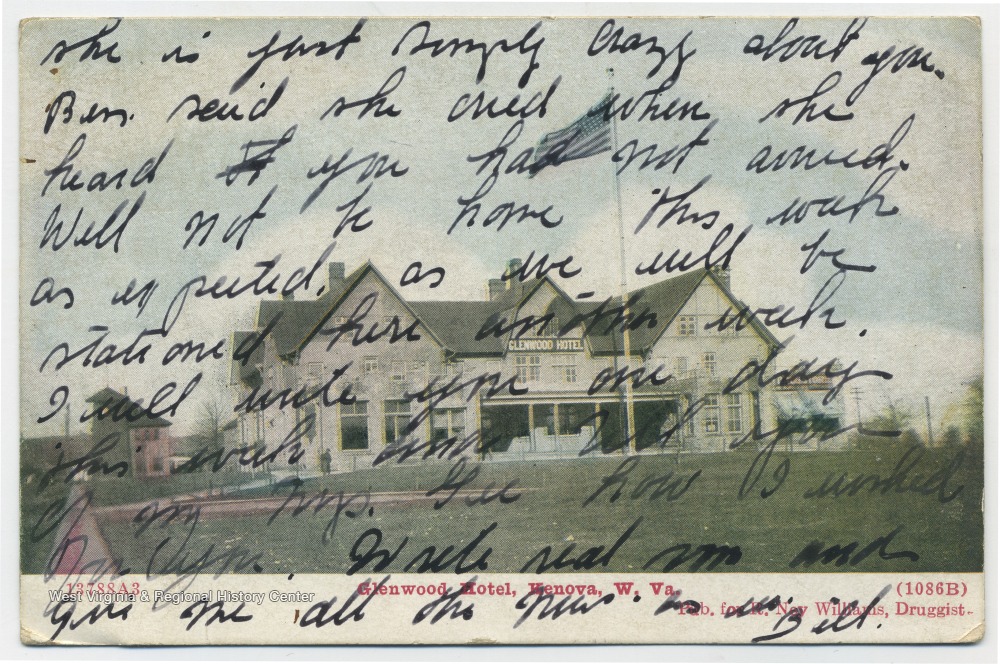 she is just simply crazy about you.
Bess. said she cried when she
heard you had not arrived.
Will not be home this week
as expected, as we will be
stationed here another week.
GLENWOOD HOTEL
I will write you one day
this week and tell you
of my trip. Gee how I worked
for you. Write real soon and
13788A3 Glenwood Hotel, Kenova, W. Va. (1086B)
West Virginia & Regional History Center
Pub. for R. Ney Williams, Druggist.
Give me all the news as
Bill.